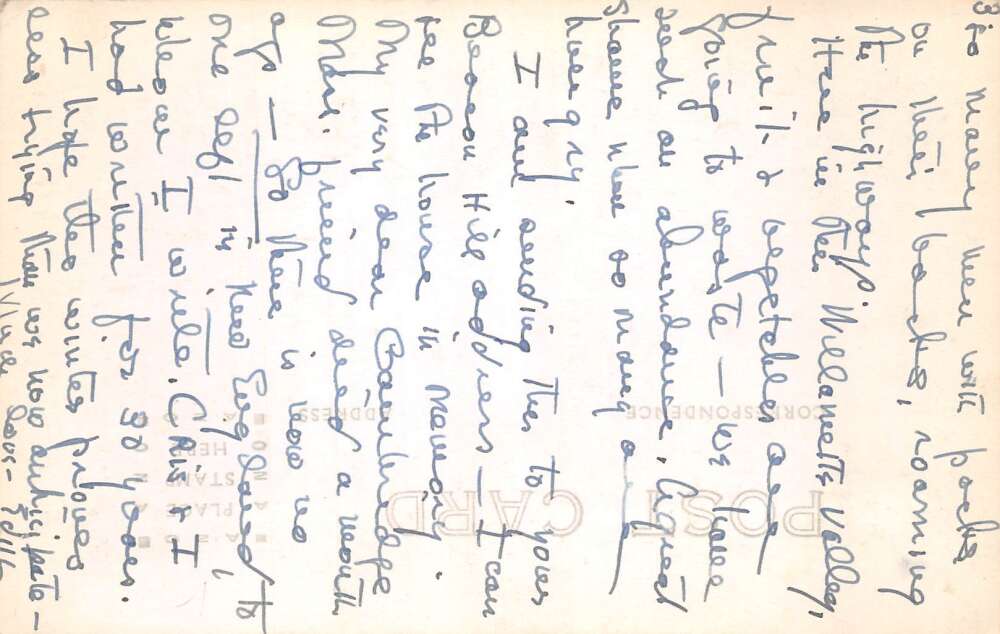 3
so many men with packs
on their backs, roaming
the highways.
Here in the Willamette Valley,
fruit & vegetables are
going to waste — we have
such an abundance. A great
shame when so many are
hungry.
I am sending this to your
Beacon Hill address — I can
see the house in memory.
My very dear Cambridge
Mass. friend died a month
ago — So there is now no
one left in New England to
whom I write. Chris & I
had written for 30 years.
I hope this winter proves
less trying than we now anticipate —
Much love —
POST CARD
CORRESPONDENCE
ADDRESS
PLACE
STAMP
HERE